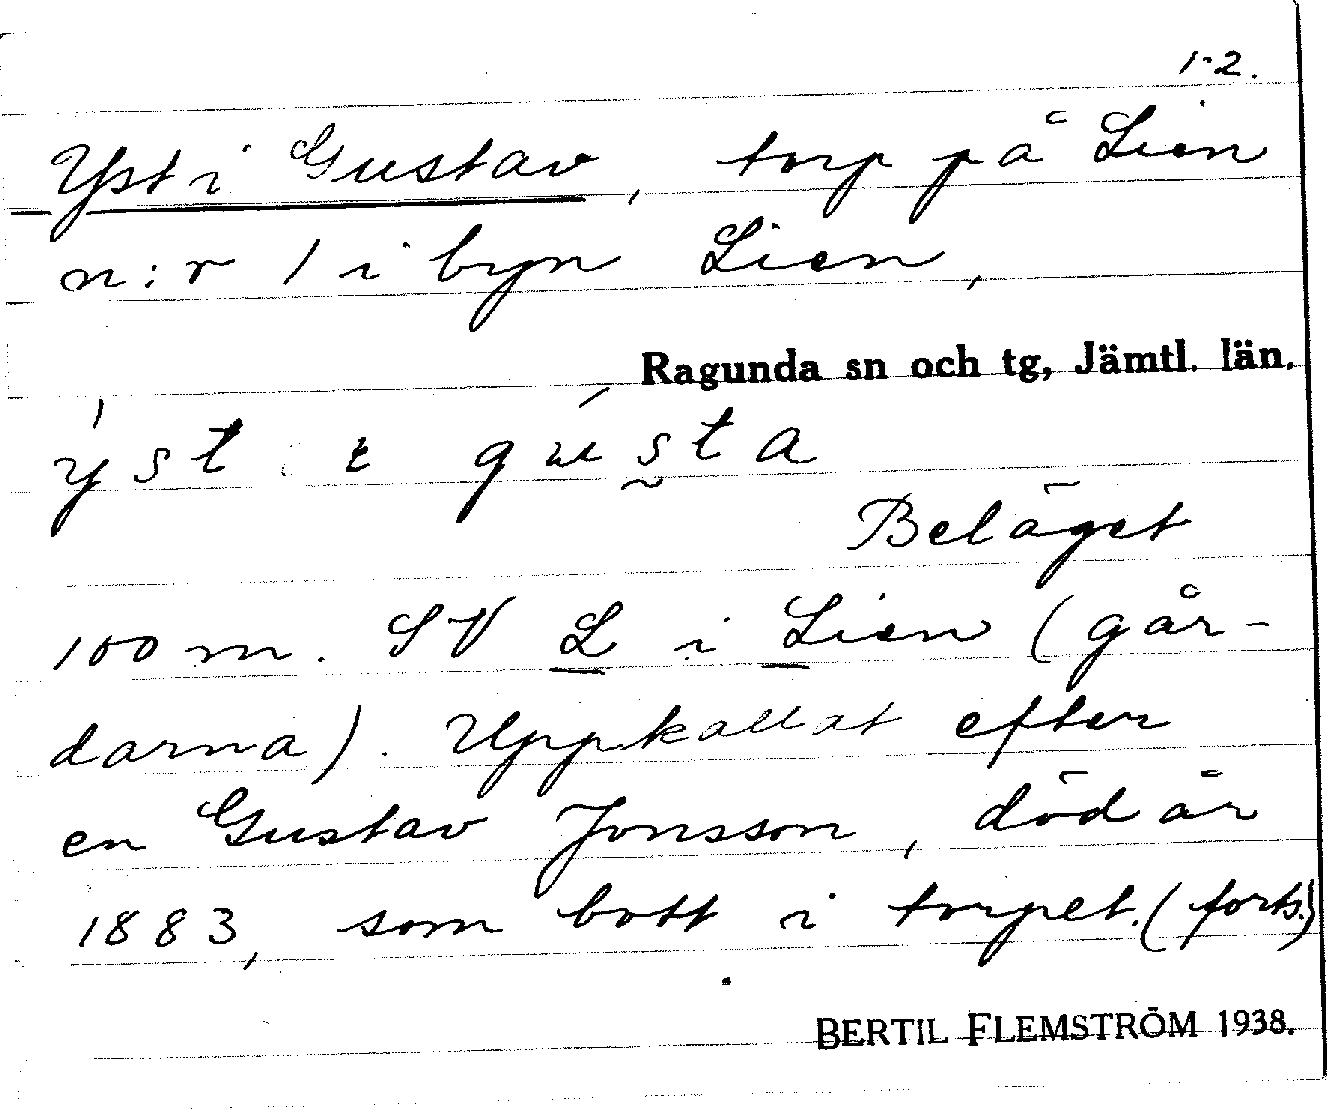 1-2.
Yst i Gustav, torp på Lien
n:r 1 i byn Lien,
Ragunda sn och tg, Jämtl. län.
ýst ɩ gústa
Beläget
100 m. SV L i Lien (går-
darna). Uppkallat efter
en Gustav Jonsson, död år
1883, som bott i torpet. (forts.)
BERTIL FLEMSTRÖM 1938.